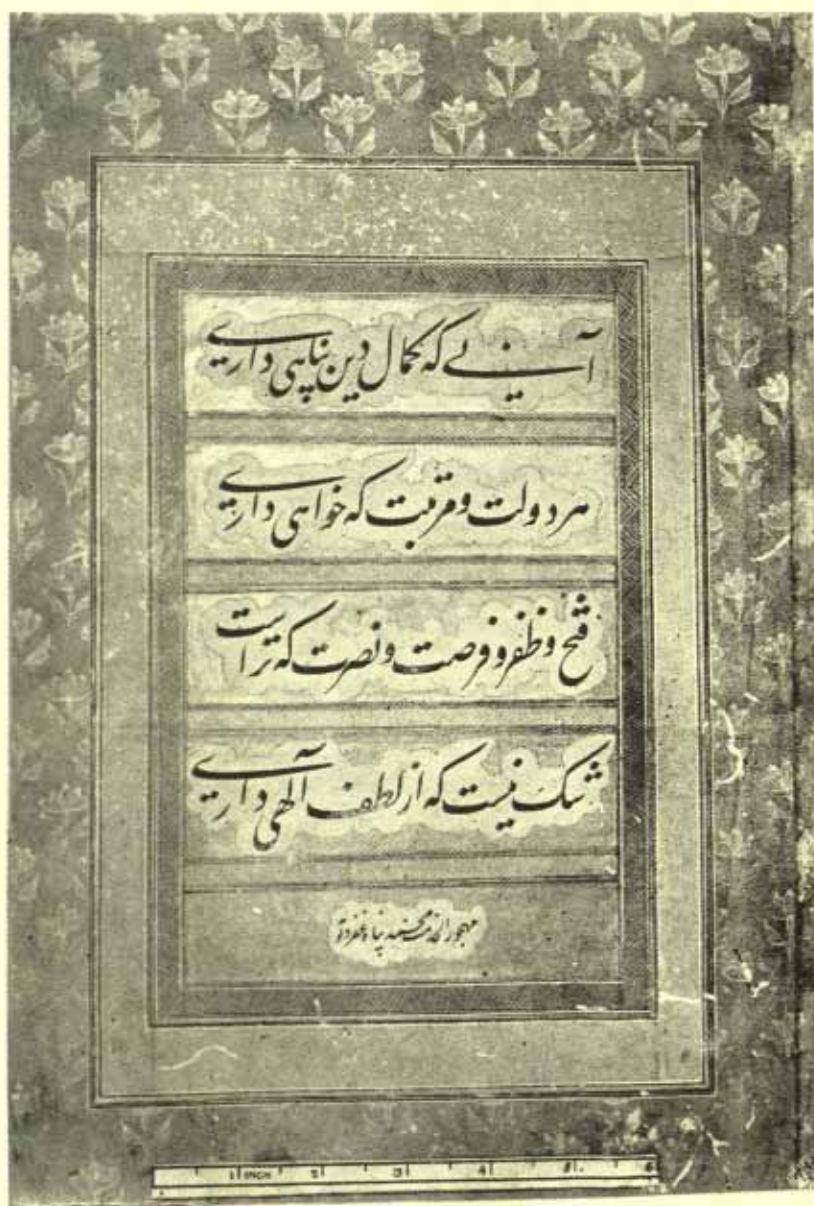 آنی که کمال دین پناهی داری
هر دولت و مرتبت که خواهی داری
فتح و ظفر و فرصت و نصرت که تراست
شک نیست که از لطف آلهی داری
محمد پناه غفر ذنوبه
1 INCH 2 3 4 5 6